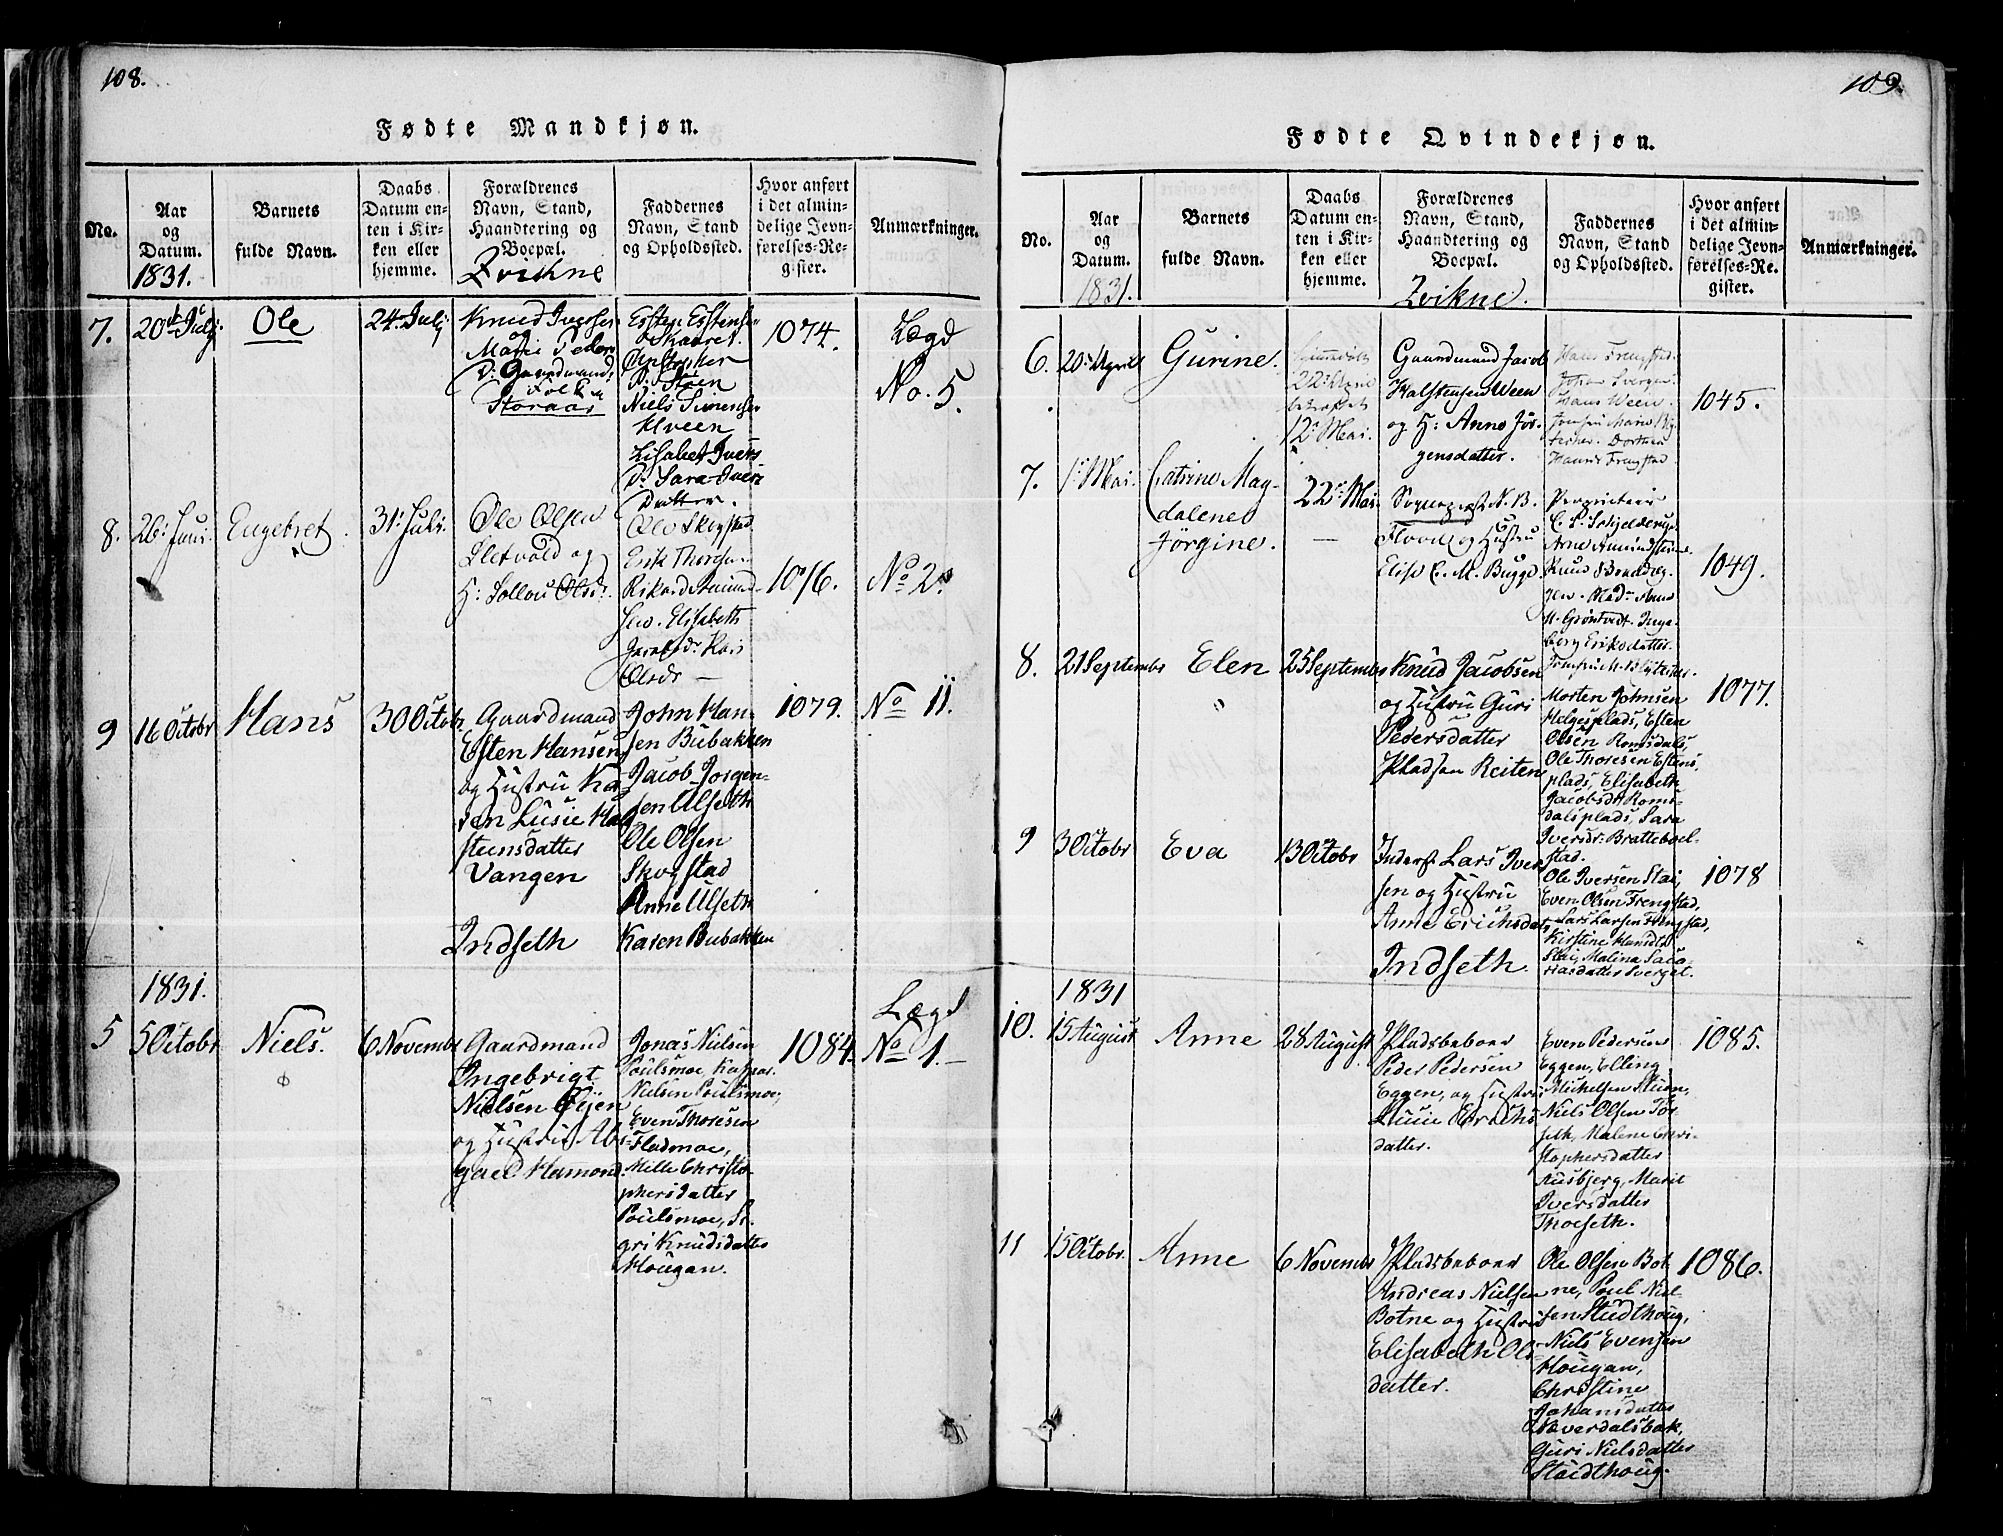 108.
Fødte Mandkjøn.
No.
Aar
og
Datum.
1831.
Barnets
fulde Navn.
Daabs
Datum en-
ten i Kir-
ken eller
hjemme.
Forældrenes
Navn, Stand,
Haandtering og
Boepæl.
Qvikne
Faddernes
Navn, Stand
og Opholdssted.
Hvor anført
i det almin-
delige Jevn-
førelses-Re-
gister.
Anmærkninger.
7.
20de Julj.
Ole
24. Julj
Knud Iverser
Marit Peders
D: Gaardmand
Folk
Storaas
Esten Estenser
Kaaret.
Christopher
Steen
Niels Simenser
Hveen
Lisabet Ivers
D: Sara Iver
Datter.
1074.
Lægd
No. 5.
8.
26. Juni.
Engebret.
31: Juli.
Ole Olsen
Sletvold og
H: Sollou Olsd:
Ole Skogstad
Erik Thorsen
Rikard Amund
sen. Elisabeth
Jacobsdr Kari
Olsdr —
1076.
No 2.
9
16 Octobr
Hans
30 Octobr
Gaardmand
Esten Hansen
og Hustru Ka
ren Lusie Hal
steensdatter
Vangen
Indseth
John Han-
sen Bubakken
Jacob Jorgen-
sen Ulseth
Ole Olsen
Skogstad
Anne Ulseth
Karen Bubakken
1079.
No 11.
1831.
5
5 Octobr
Niels.
6 Novembr
Gaardmand
Ingebrigt
Nielsen Øijen
og Hustru Abi
gael Hamond
Jonas Nielsen
Poulsmoe, Kaspar
Nielsen Poulsmoe,
Even Thoresen
Fladmoe,
Mille Christo-
phersdatter
Poulsmoe, Si-
gri Knudsdatter
Hougan.
1084.
Lægd
No 1.—
109.
Fødte Qvindekjøn.
No.
Aar
og
Datum.
1831.
Barnets
fulde Navn.
Daabs
Datum en-
ten i Kir-
ken eller
hjemme.
Forældrenes
Navn, Stand,
Haandtering og
Boepæl.
Qvikne.
Faddernes
Navn, Stand
og Opholdssted.
Hvor anført
i det almin-
delige Jevn-
førelses-Re-
gister.
Anmærkninger.
6.
20: April
Gurine.
hjemmedøbt
bekræftet
12: Mai.
Gaardmand Jacob
Halstensen Ween
og H: Anne Jør-
gensdatter.
Hans Frengstad.
Hans Ween.
Frengstad.
1045.
7.
1: Mai.
Catrine Mag-
dalene
Jørgine.
22: Mai
—
Sognepræst N. B.
Flood og Hustru
Elise C. M. Bugge
Proprietair
C. P. Schjelderup
Arne Amundsen
Knud
Mad: Anne
M. Grøntvedt. Inge-
berg Eriksdatter.
1049.
8.
21 Septembr
Elen
25 Septembr
Knud Jacobsen
og Hustru Guri
Pedersdatter
Pladsen Reiten
Morten Johnsen
Helgesplads, Esten
Olsen Romsdals,
Ole Thoresen Estens
plads, Elisabeth
Jacobsdt Roms-
dalsplads, Sara
Iversdr. Bratteboel-
stad.
1077.
9
3 Octobr
Eva
13 Octobr
Inderst Lars Iver
sen og Hustru
Anne Erichsdat
Indseth.
Ole Iversen Stai,
Even Olsen Frengstad,
Lars Larsen Frengstad,
Kirstine Hansdtr
Stai, Malina Saca-
riasdatter Sverget.
1078
1831
10.
15 August
Anne
28 August
Pladsbeboer
Peder Pedersen
Eggen, og Hustru
Lucie Erichs
datter.
Even Pedersen
Eggen, Elling
Mickelsen Stuen,
Niels Olsen Tor
seth, Malene Chri-
stophersdatter
Ausbjerg, Marit
Iversdatter
Thoeseth.
1085.
11
15 Octobr.
Anne
6 Novembr
Pladsbeboer
Andreas Nielsen
Botne og Hustru
Elisabeth Ols
datter.
Ole Olsen Bot
ne, Poul Niel-
sen Studthoug,
Niels Evensen
Hougan,
Christine
Johansdatter
Næverdalsbak,
Guri Nielsdatter
Stødthoug.
1086.